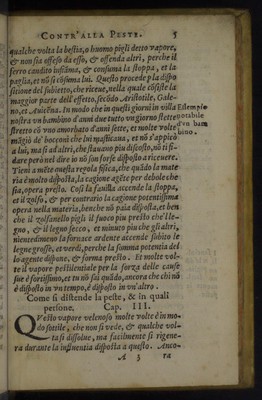 CONTR'ALLA PESTE. 5
qualche volta la bestia, o huomo pigli detto vapore,
& non sia offeso da esso, & offenda altri, perche il
ferro candito infiãma, & consuma la stoppa, et la
paglia, et nõ se cõsuma lui. Questo procede p la dispo
sitione del subietto, che riceue, nella quale cõsiste la
maggior parte dell'effetto, secõdo Aristotile, Gale-
no, et Auicēna. In modo che in questi giorni in villa
Essempio
nostra vn bambino d'anni due tutto vn giorno stette
notabile
stretto cõ vno amorbato d'anni sette, et molte volte
d'vn bam
mãgiò de' bocconi che lui masticaua, et nõ s'appicò
bino.
a lui, ma sì ad altri, che stauano piu discosto, nõ ti si-
dare però nel dire io nõ son forse disposto a riceuere.
Tieni a mēte questa regola fisica, che quãdo la mate
ria è molto disposta, la cagione agēte per debole che
sia, opera presto. Così la fauilla accende la stoppa,
et il zolfo, & per contrario la cagione potentissima
opera nella materia, benche nõ paia disposta, et ben
che il zolfanello pigli il fuoco piu presto che'l le-
gno, & il legno secco, et minuto piu che gli altri,
nientedimeno la fornace ardente accende subito le
legne grosse, et verdi, perche la somma potentia del
lo agente dispone, & forma presto. Et molte vol-
te il vapore pestilentiale per la forza delle cause
sue è fortissimo, et tu nõ sai quãdo, ancora che chi nõ
è disposto in vn tempo, è disposto in vn'altro.
Come si distende la peste, & in quali
persone. Cap. III.
QVesto vapore velenoso molte volte è in mo-
do sottile, che non si vede, & qualche vol-
ta si dissolue, ma facilmente si rigene-
ra durante la influentia disposta a questo. Anco-
A 3 ra